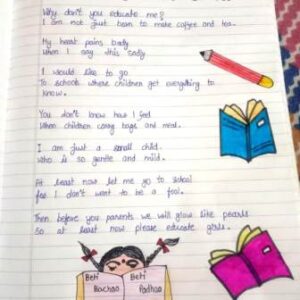 Why don't you educate me?
I am not just born to make coffee and tea.
My heart pains badly
When I say this sadly
I would like to go
To schools where children get everything to
know.
You don't know how I feel
When children carry bags and meal.
I am just a small child.
Who is so gentle and mild.
At least now let me go to school
for I don't want to be a fool.
Then before you parents we will glow like pearls
So at least now please educate girls.
Beti
Bachao
Beti
Padhao